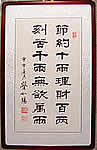 節約十兩理財百兩
刻苦千兩無欲萬兩